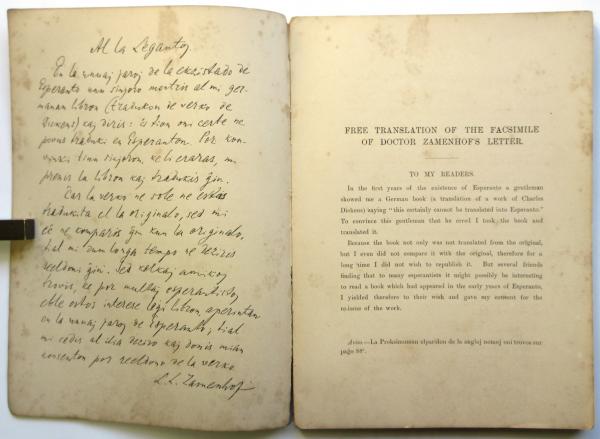 Al la Legantoj
En la unuaj jaroj de la ekzistado de
Esperanto unu sinjoro montris al mi ger-
manan libron (tradukon de verko de
Dickens) kaj diris: ĉi tion oni certe ne
povus traduki en Esperanton. Por kon-
vinki tiun sinjoron, ke li eraras, mi
prenis la libron kaj tradukis ĝin.
Ĉar la verko ne sole ne estas
tradukita el la originalo, sed mi
eĉ ne komparis ĝin kun la originalo,
tial mi dum longa tempo ne deziris
reeldoni ĝin. Sed kelkaj amikoj
trovis, ke por multaj esperantistoj
eble estos interese legi libron aperintan
en la unuaj jaroj de Esperanto; tial
mi cedis al ilia deziro kaj donis mian
konsenton por reeldono de la verko.
L. L. Zamenhof
FREE TRANSLATION OF THE FACSIMILE
OF DOCTOR ZAMENHOF'S LETTER.
TO MY READERS.
In the first years of the existence of Esperanto a gentleman
showed me a German book (a translation of a work of Charles
Dickens) saying "this certainly cannot be translated into Esperanto."
To convince this gentleman that he erred I took the book and
translated it.
Because the book not only was not translated from the original,
but I even did not compare it with the original, therefore for a
long time I did not wish to republish it. But several friends
finding that to many esperantists it might possibly be interesting
to read a book which had appeared in the early years of Esperanto,
I yielded therefore to their wish and gave my consent for the
re-issue of the work.
Aviso.—La Proksimuman elparolon de la anglaj nomoj oni trovos sur
page 98ª.